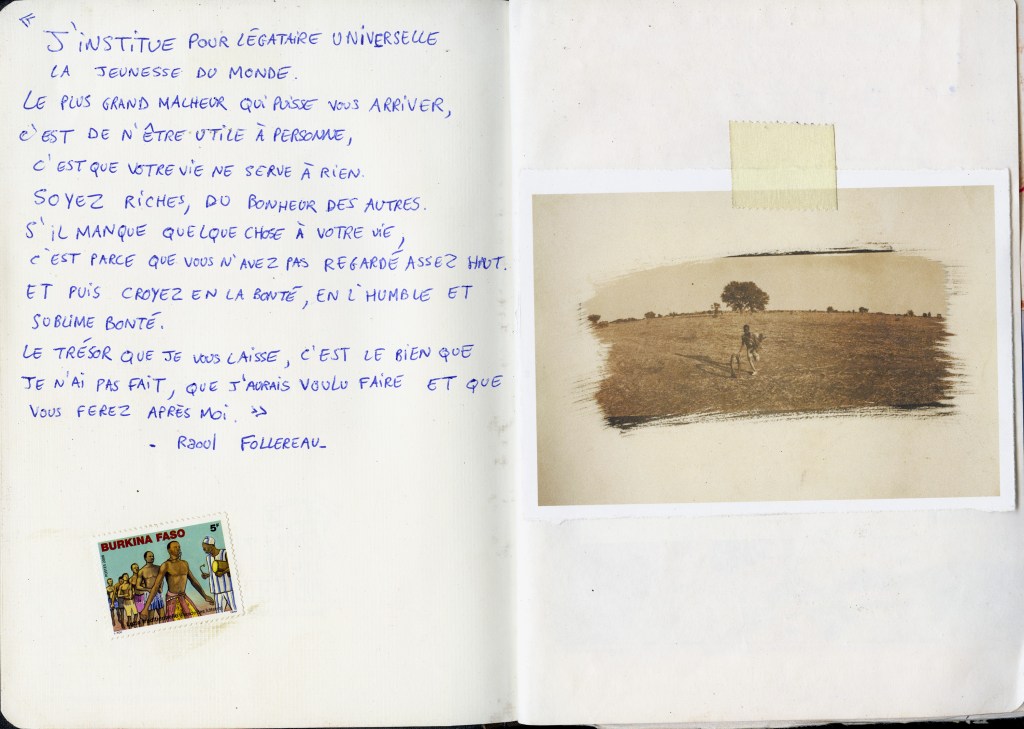 « J'INSTITUE POUR LÉGATAIRE UNIVERSELLE
LA JEUNESSE DU MONDE.
LE PLUS GRAND MALHEUR QUI PUISSE VOUS ARRIVER,
C'EST DE N'ÊTRE UTILE À PERSONNE,
C'EST QUE VOTRE VIE NE SERVE À RIEN.
SOYEZ RICHES, DU BONHEUR DES AUTRES.
S'IL MANQUE QUELQUE CHOSE À VOTRE VIE,
C'EST PARCE QUE VOUS N'AVEZ PAS REGARDÉ ASSEZ HAUT.
ET PUIS CROYEZ EN LA BONTÉ, EN L'HUMBLE ET
SUBLIME BONTÉ.
LE TRÉSOR QUE JE VOUS LAISSE, C'EST LE BIEN QUE
JE N'AI PAS FAIT, QUE J'AURAIS VOULU FAIRE ET QUE
VOUS FEREZ APRÈS MOI. »
- Raoul FOLLEREAU-
BURKINA FASO 5F